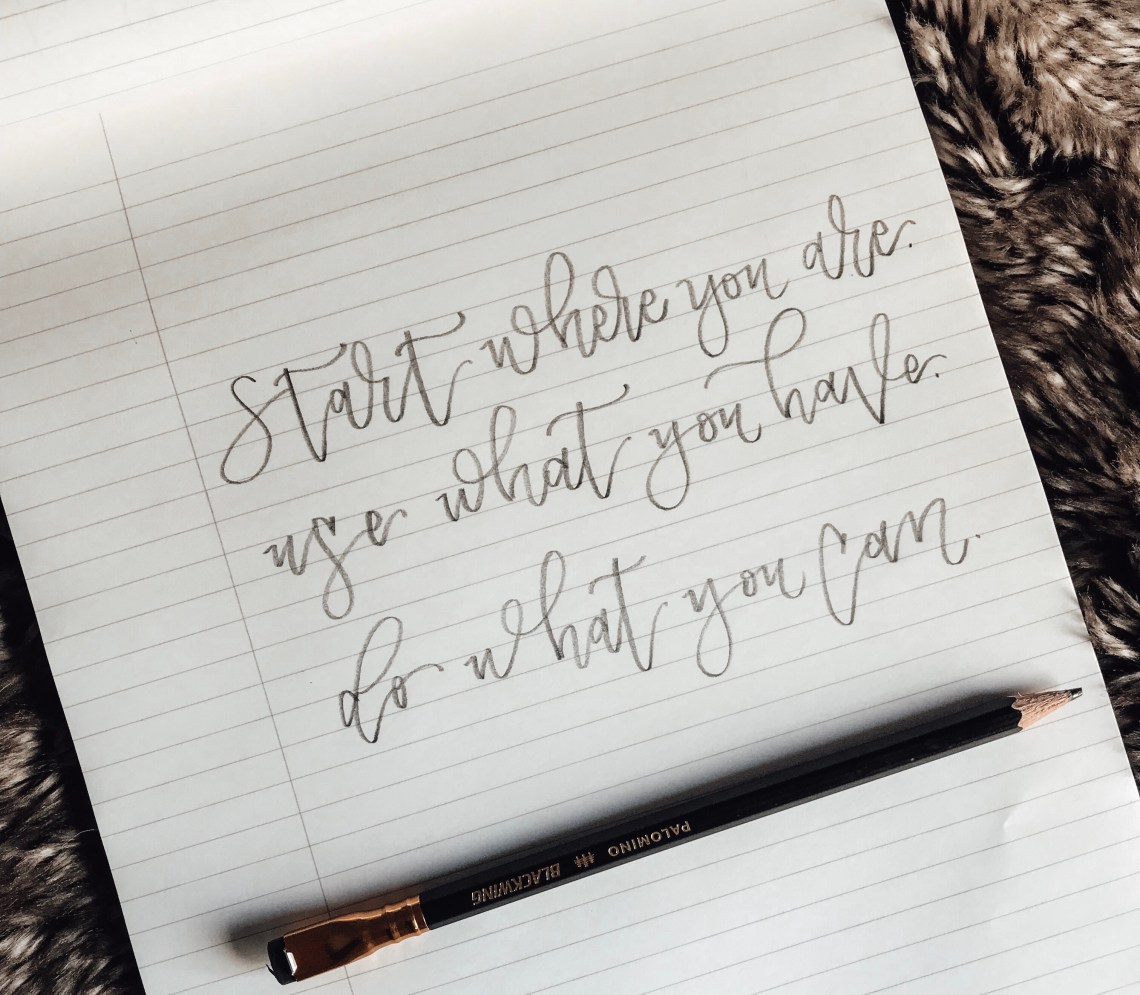 start where you are.
use what you have.
do what you can.
PALOMINO BLACKWING